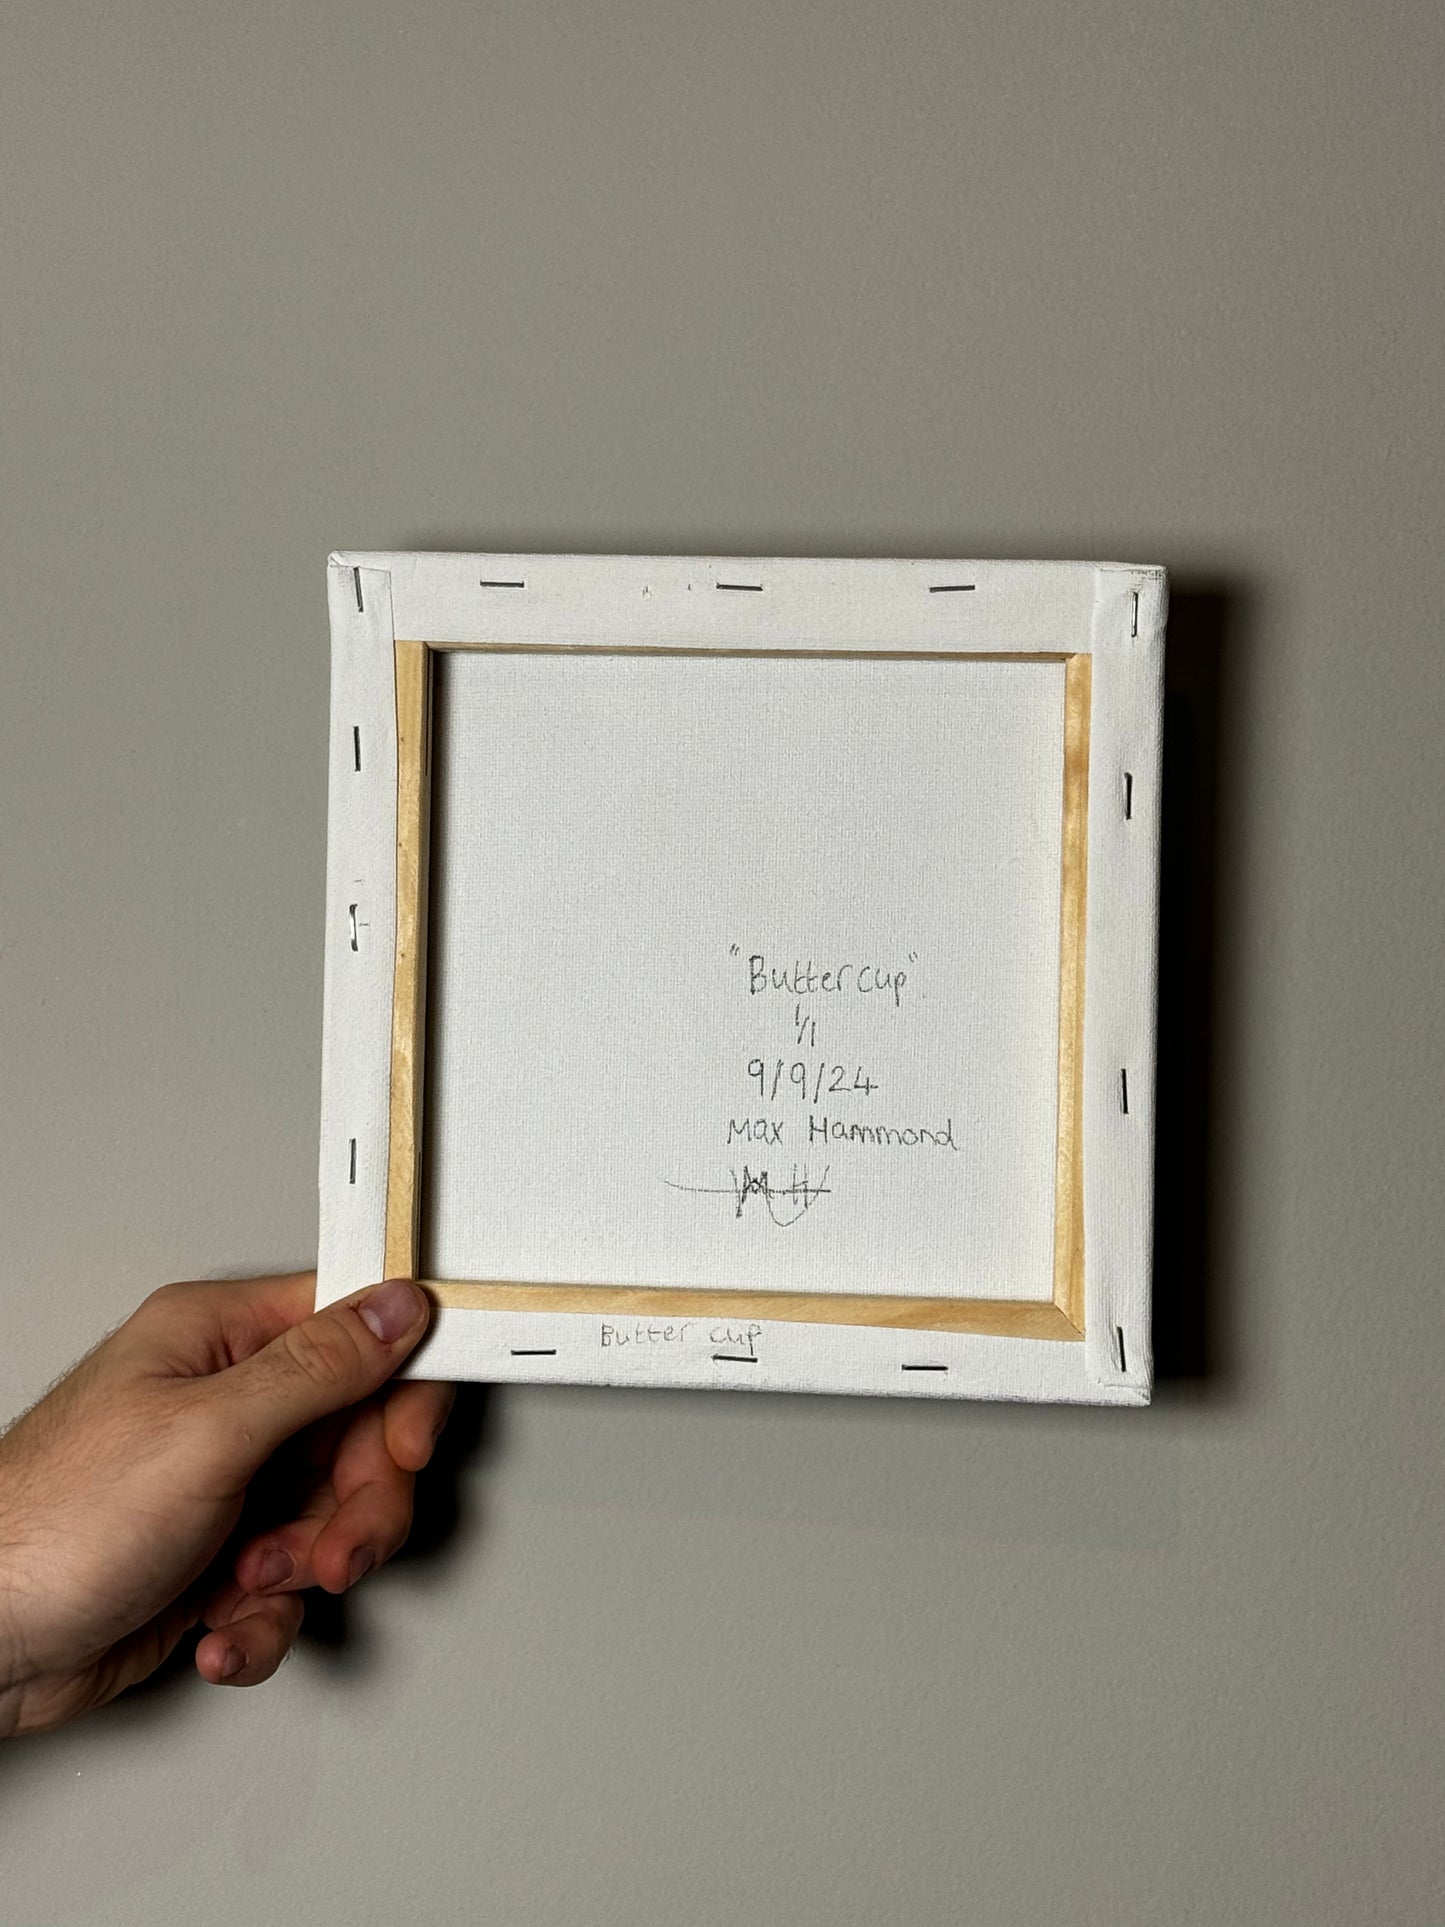 "Buttercup"
1/1
9/9/24
Max Hammond
Butter cup